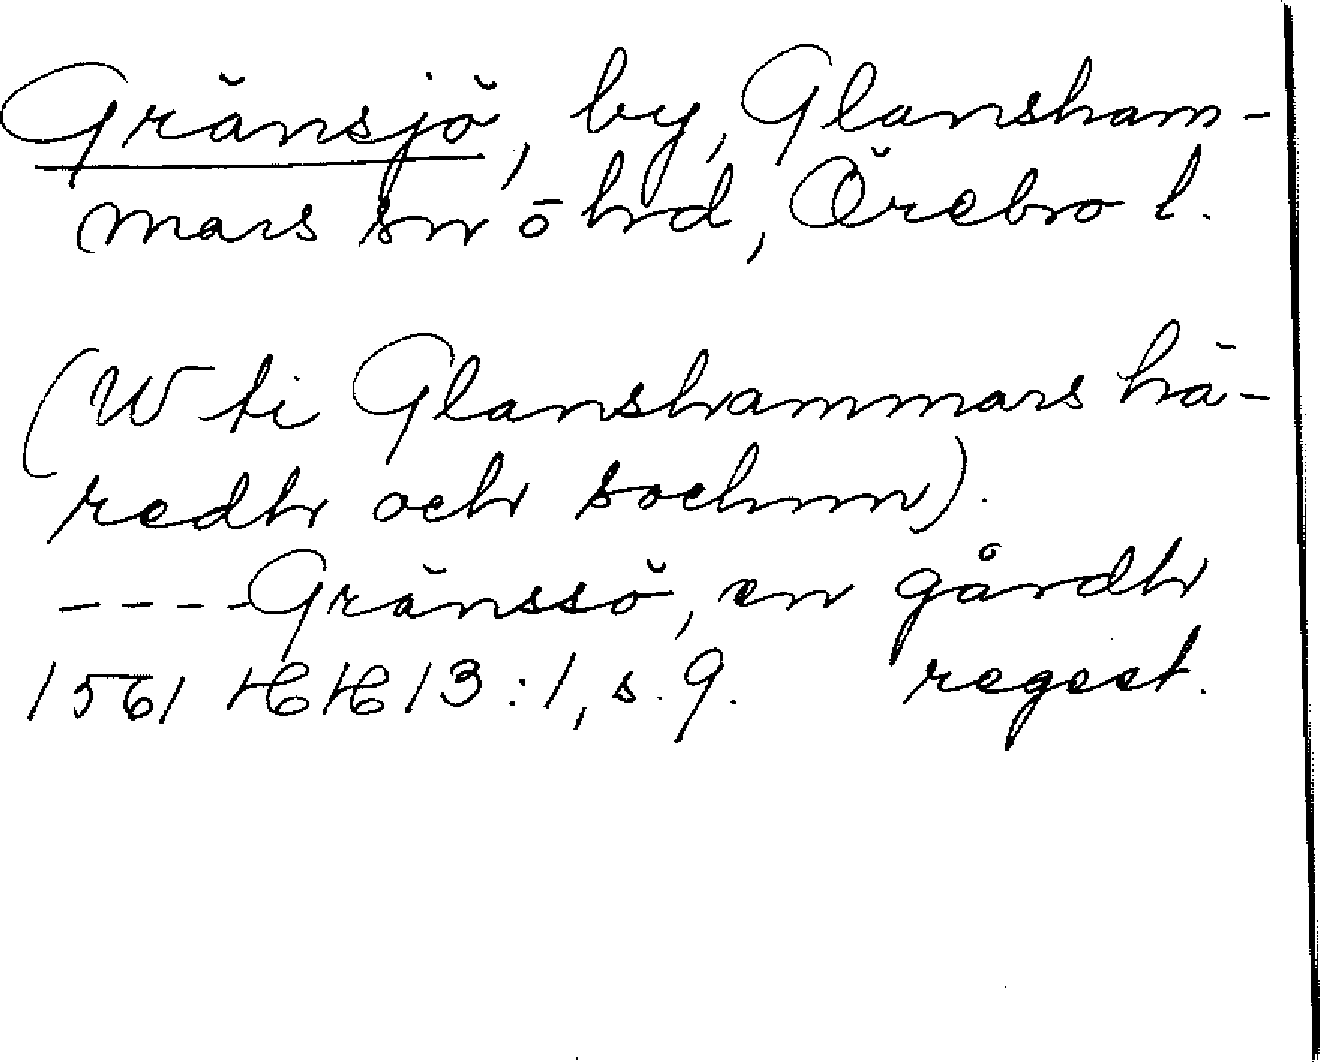 Gränsjö, by, Glansham-
mars sn o hd, Örebro l.
(W ti Glanshammars hä-
redh och sochnn).
----Gränssö, en gårdh
1561 HH 13:1, s. 9. regest.